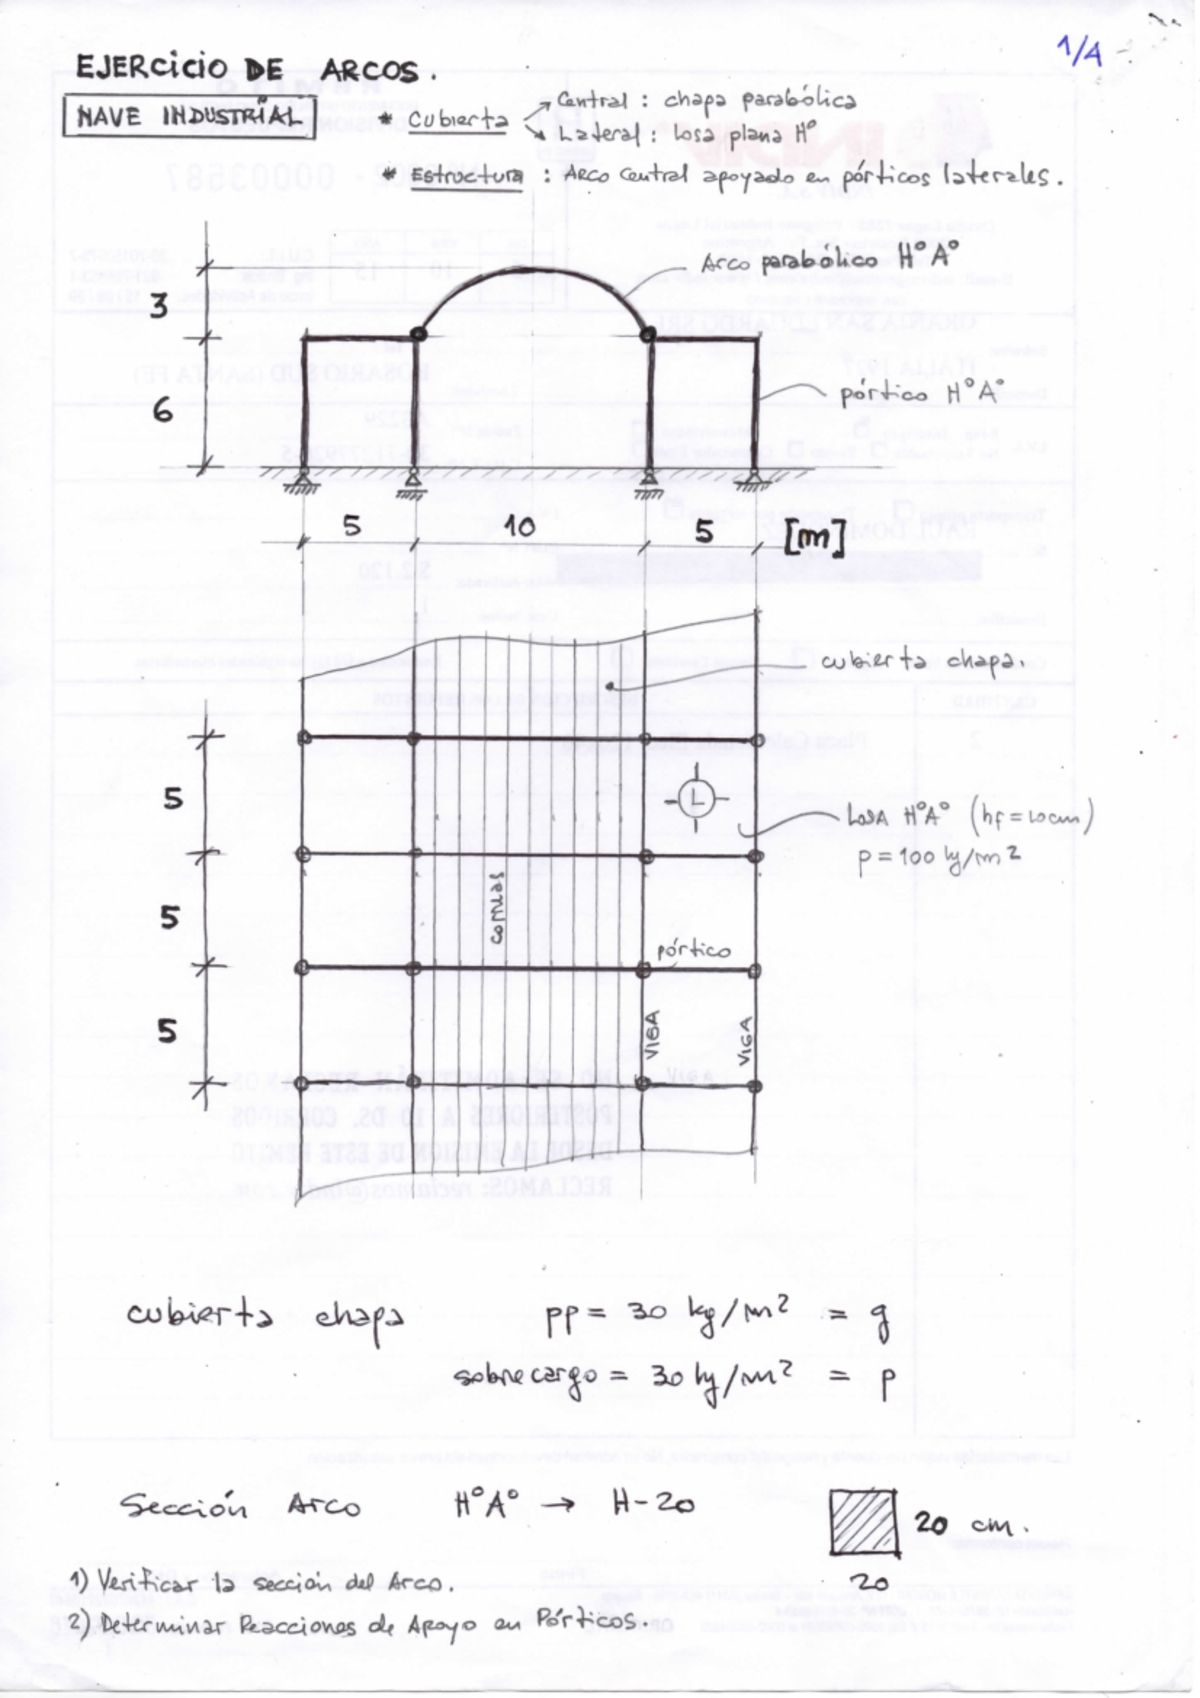 1/4
EJERCICIO DE ARCOS.
NAVE INDUSTRIAL
* Cubierta
Central : chapa parabólica
Lateral : losa plana H°
* Estructura : Arco Central apoyado en pórticos laterales.
Arco parabólico H°A°
3
6
pórtico H°A°
5 10 5 [m]
cubierta chapa.
5
L
Losa H°A° (hf = 10cm)
p = 100 kg/m²
5
correas
pórtico
5
VIGA
VIGA
VIGA
cubierta chapa pp = 30 kg/m² = g
sobrecarga = 30 kg/m² = p
Sección Arco H°A° → H-20
20 cm.
20
1) Verificar la sección del Arco.
2) Determinar Reacciones de Apoyo en Pórticos.